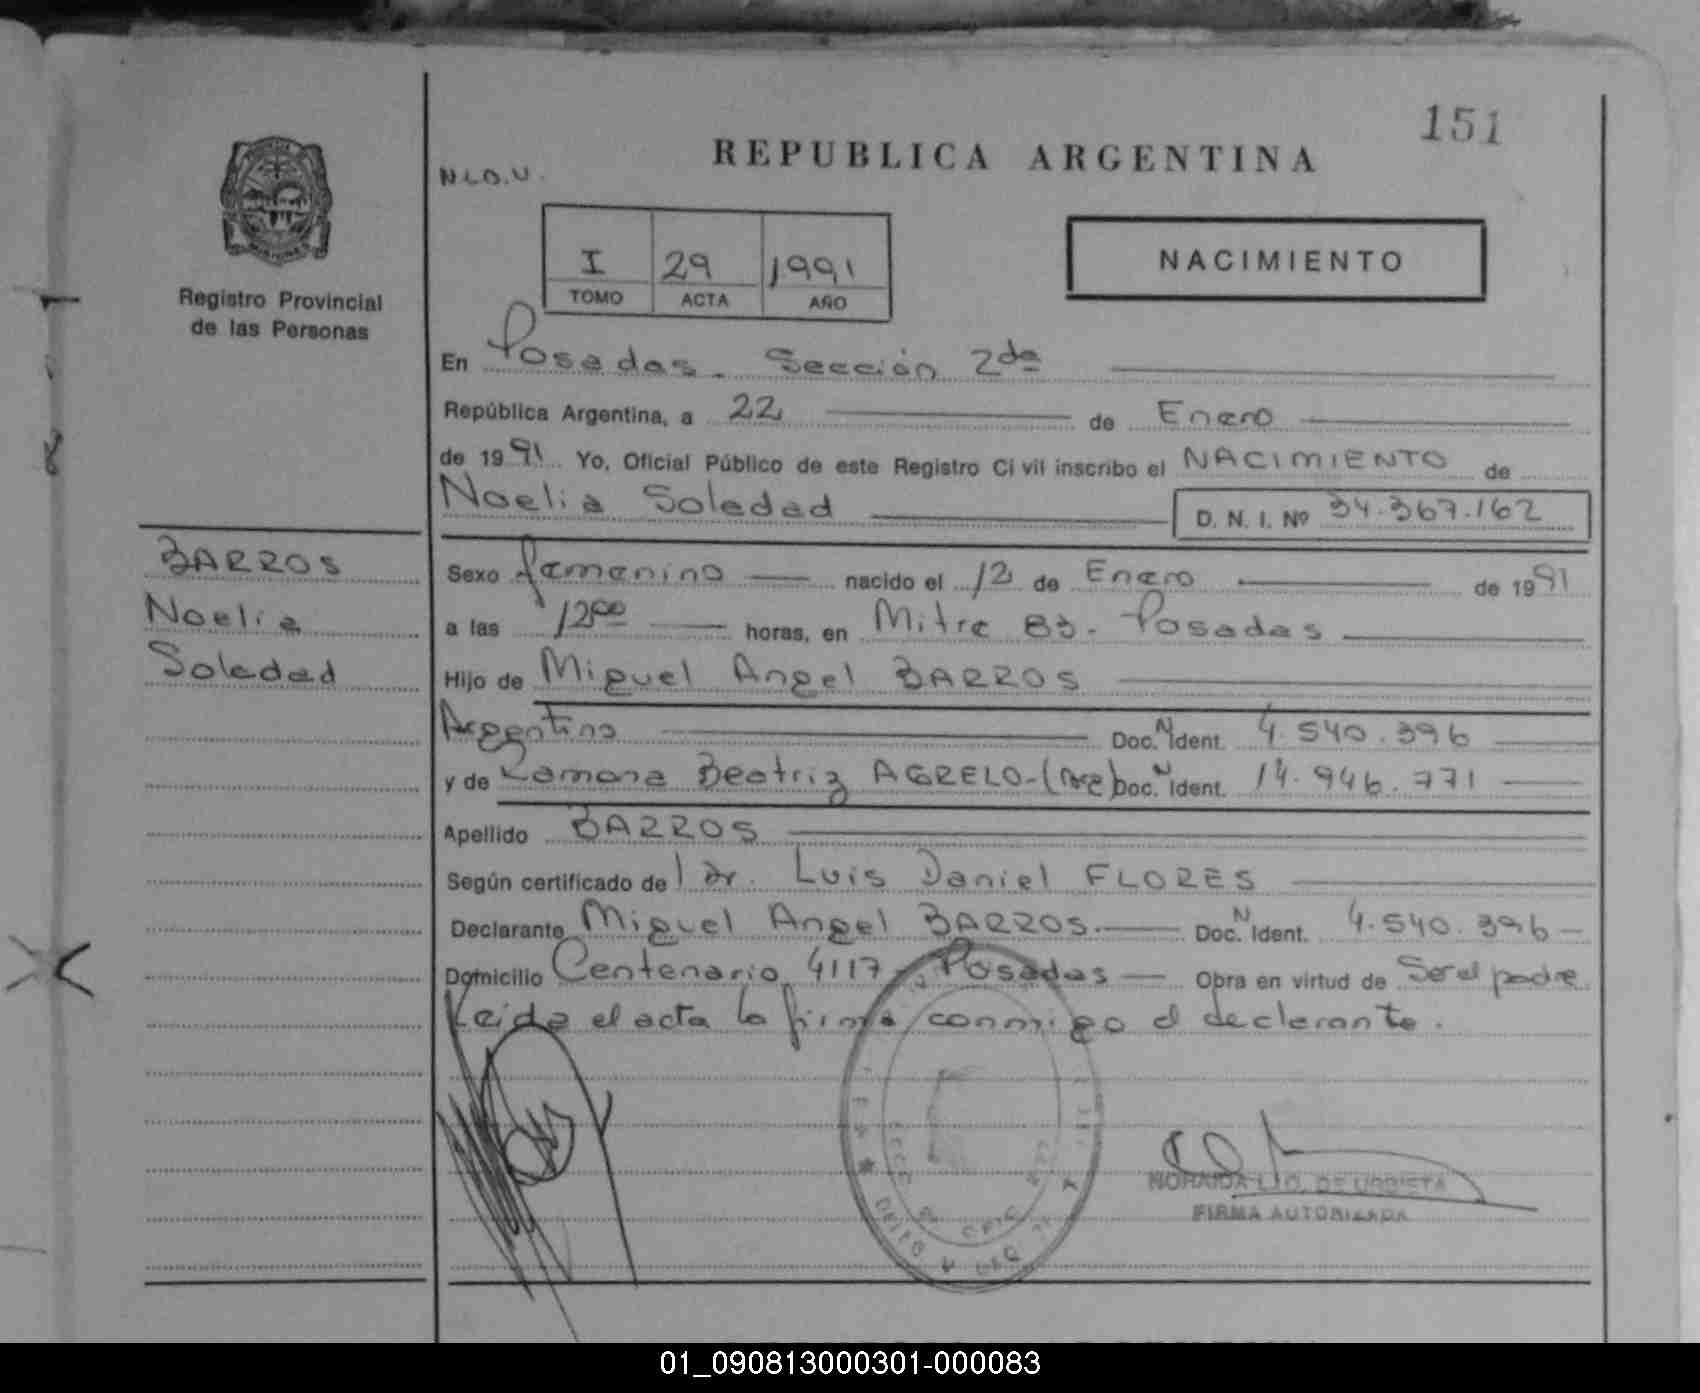 151
REPUBLICA ARGENTINA
N.L.O.U.
NACIMIENTO
I 29 1991
TOMO ACTA AÑO
Registro Provincial
de las Personas
En Posadas. Sección 2da
República Argentina, a 22 de Enero
de 1991 Yo, Oficial Público de este Registro Civil inscribo el NACIMIENTO de
Noelia Soledad D. N. I. Nº 34.367.162
BARROS
Noelia
Soledad
Sexo femenino nacido el 12 de Enero de 1991
a las 12 00 horas, en Mitre 83. Posadas
Hijo de Miguel Angel BARROS
Argentino Doc. N Ident. 4.540.396
y de Ramona Beatriz AGRELO Doc. N Ident. 14.946.771
Apellido BARROS
Según certificado de l Dr. Luis Daniel FLORES
Declarante Miguel Angel BARROS. Doc. N Ident. 4.540.396
Domicilio Centenario 4117 - Posadas Obra en virtud de Ser el padre
Leida el acta la firma conmigo el declarante.
DE URDISTA
FIRMA AUTORIZADA
01_090813000301-000083